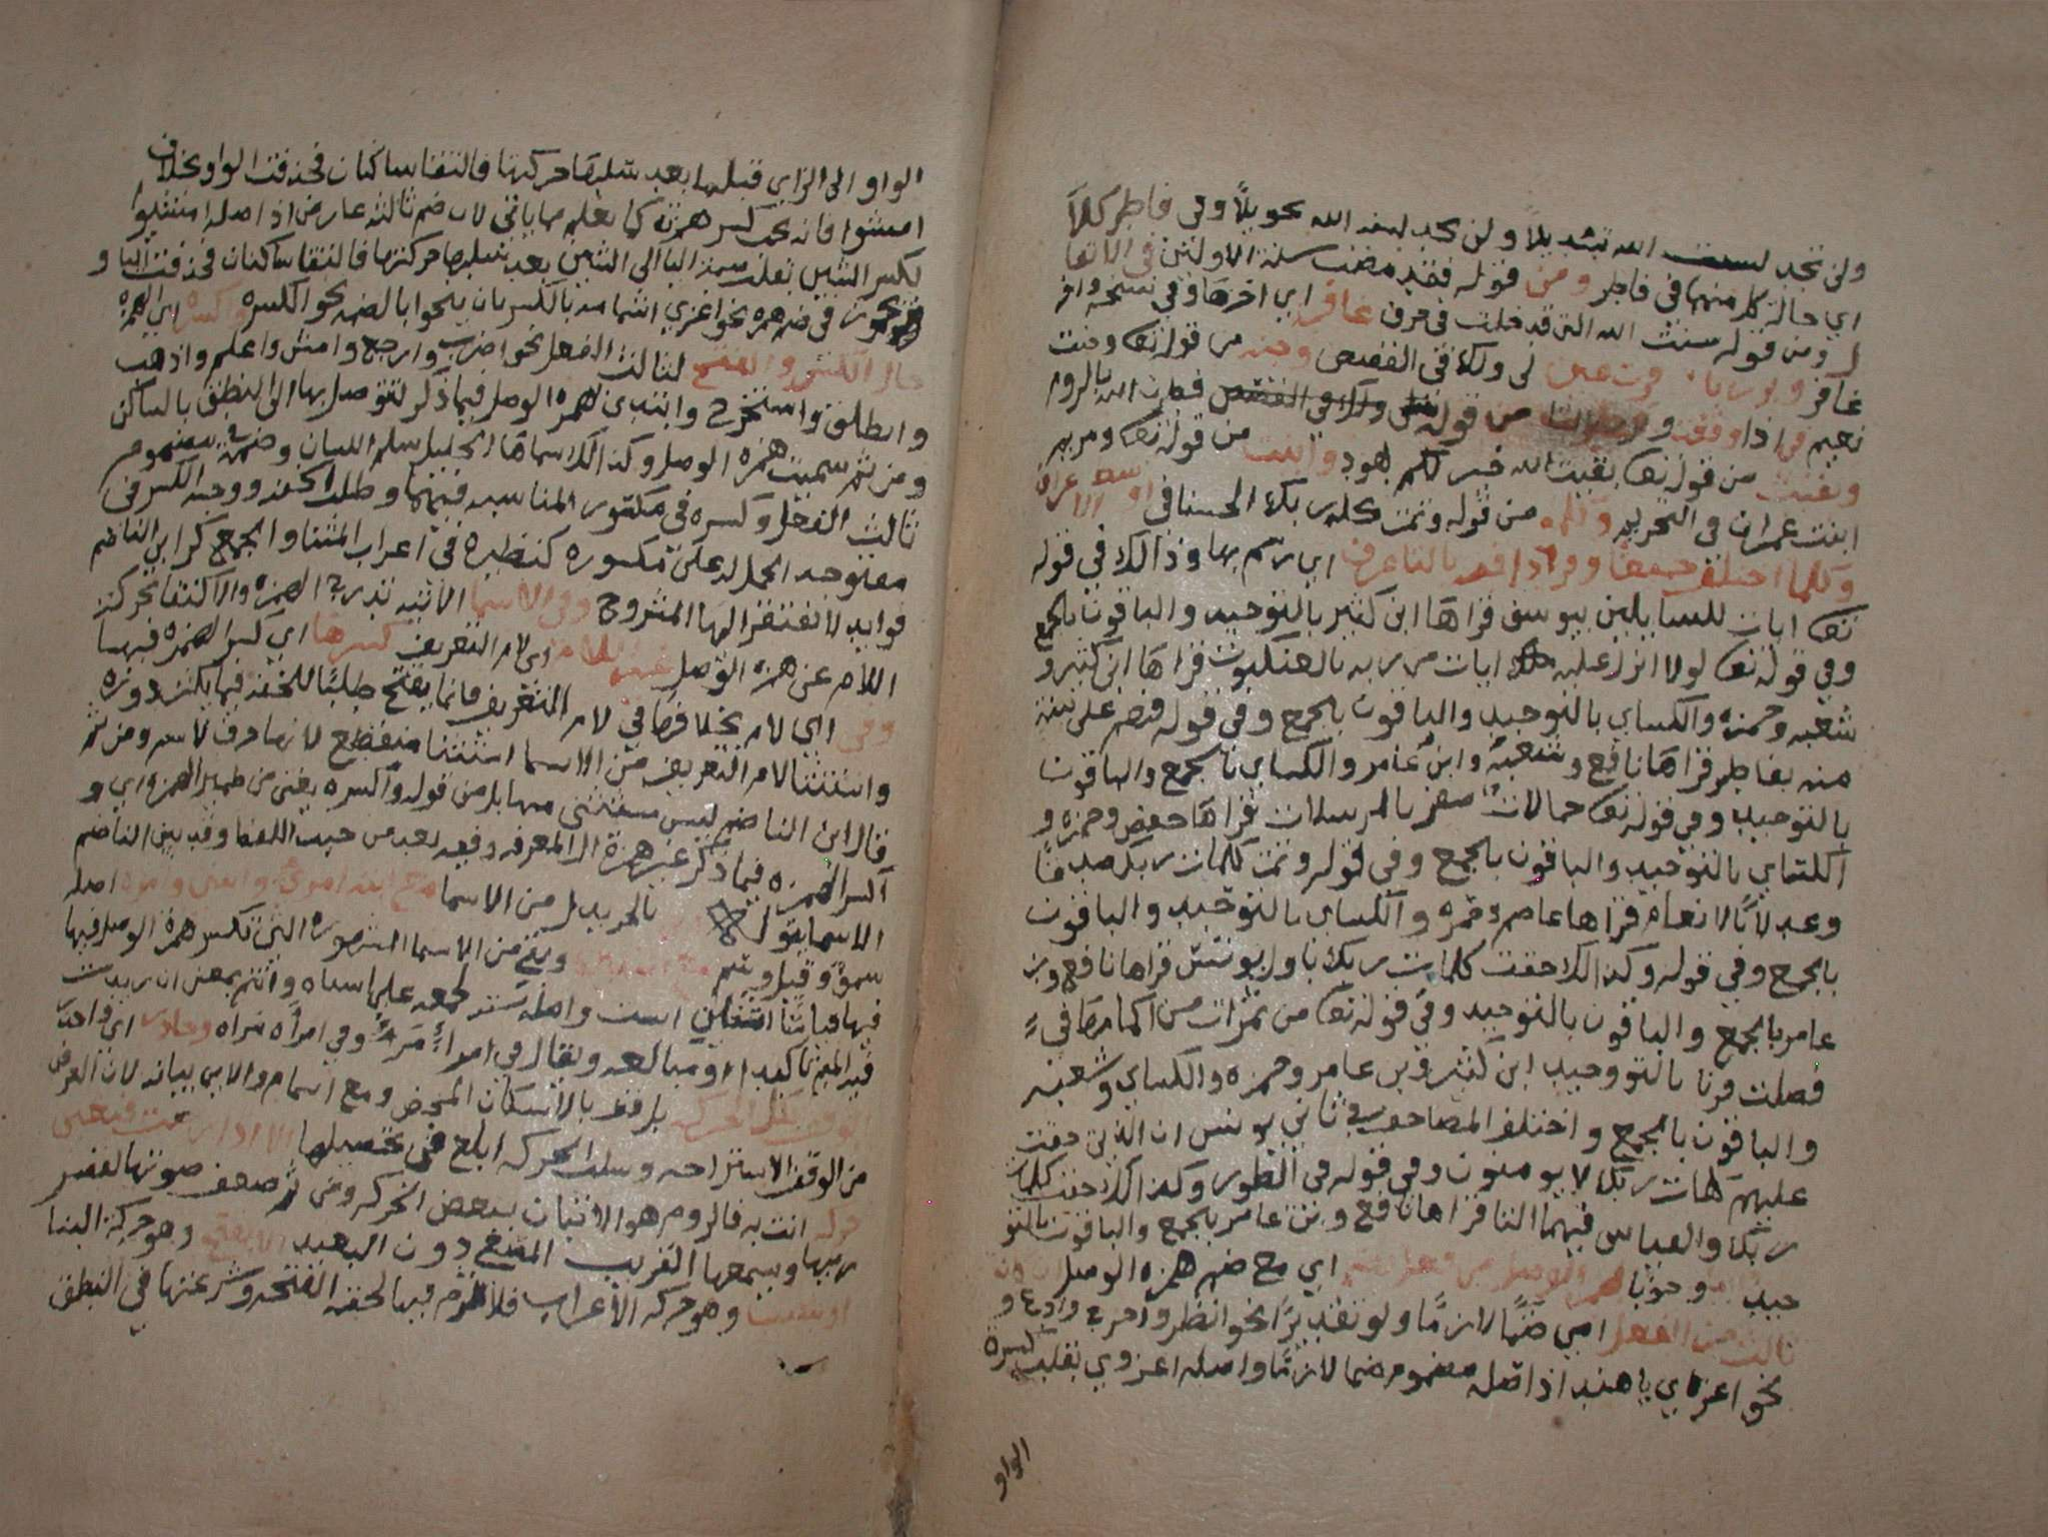 ولن تجد لسنت الله تبديلا ولن تجد لسنة الله تحويلاً وفي فاطر كلاً
اي حالة كل منها في فاطر ومن قوله فقد مضت سنة الاولين في الانفا
ل ومن قوله سنت الله التي قد خلت في حرف غافر اي اخرها وفي نسخه واخر
غافر قرت عين لي ولك في القصص وجنت من قوله تعا وجنت
نعيم في اذا وقعت و من قوله لي ولك في القصص فطرت الله بالروم
وبقيت من قوله تعا بقيت الله خير لكم بهود وابنت من قوله تعا ومريم
ابنت عمران في التحريم وكلمه من قوله وتمت كلمة ربك الحسنا في اوسط الاعراف
وكلما اختلف جمعا وفردا فيه بالتا عرف اي رسم بها وذالك في قوله
تعا ايات للسايلين بيوسف قراها ابن كثير بالتوحيد والباقون بالجمع
وفي قوله تعا لولا انزل عليه ايات من ربه بالعنكبوت قراها ابن كثير و
شعبه وحمزه والكساي بالتوحيد والباقون بالجمع وفي قوله فهم على بينة
منه بفاطر قراها نافع وشعبة وابن عامر والكساي بالجمع والباقون
بالتوحيد وفي قوله تعا جمالات صفر بالمرسلات قراها حفص وحمزه و
الكساي بالتوحيد والباقون بالجمع وفي قوله وتمت كلمات ربك صدقا
وعدلا بالانعام قراها عاصم وحمزه والكساي بالتوحيد والباقون
بالجمع وفي قوله وكذالك حقت كلمات ربك باول يونس قراها نافع وبن
عامر بالجمع والباقون بالتوحيد وفي قوله تعا من ثمرات من اكمامها في
فصلت قرنا بالتووحيد ابن كثير وبن عامر وحمزه والكساي وشعبه
والباقون بالجمع واختلف المصاحف في ثاني يونس ان الذين حقت
عليهم كلمات ربك لا يومنون وفي قوله في الطور وكذالك حقت كلمات
ربك والقياس فيهما التا قراها نافع وبن عامر بالجمع والباقون بالتو
حيد وابدا وجوبا بهمز الوصل من فعل بضم اي مع ضم همزه الوصل ان كان
ثالث من الفعل اي ضمًّا لازمًّا ولو تقديرًا نحو انظر واخرج وادع و
نحو اغزي يا هند اذ اصله مضموم ضما لازمًّا واصله اغزوي نقلت كسرة
الواو
الواو الى الزاي قبلها بعد سلبها حركتها فالتقا ساكنان فحذفت الواو بخلاف
امشوا فانه يجب كسر همزته كما يعلم مما ياتي لان ضم ثالثه عارض اذ اصله امشيوا
بكسر الشين نقلت ضمة اليا الى الشين بعد سلبها حركتها فالتقا ساكنان فحذفت اليا و
يجوز في ضم همزه نحو اغزي اشمامه بالكسر بان ينحوا بالضمه نحو الكسره واكسره اي الهمزه
حال الكسر والفتح لثالث الفعل نحو اضرب وارجع وامش واعلم واذهب
وانطلق واستخرج وابتدي بهمزه الوصل فيما ذكر لتتوصل بها الى النطق بالساكن
ومن ثم سميت همزه الوصل وكذالك سماها الخليل سلم اللسان وضمت في مضموم
ثالث الفعل وكسره في مكسور المناسبه فيهما وطلب الخفه ووجه الكسر في
مفتوحه الحمل له على مكسوره كنظيره في اعراب المثنا والجمع كر ابن الناضم
فوايد لا تفتقر اليها المشروح وفي الاسما الاتيه تدرج الهمزه والاكتفا بحركة
اللام عن همزه الوصل غير اللام اي لام التعريف كسرها اي كسر الهمزه فيها
وفي اي لام بخلافها في لام التعريف فانها تفتح طلبًا للخفه فيما يكثر دوره
واستثنا لام التعريف من الاسما استثنا منقطع لانها حرف لا سم ومن ثم
قال ابن الناضم ليس مستثنى منها بل من قوله واكسره يعني من ضمير الهمزه اي و
اكسر الهمزه فيما ذكر غير همزة ال المعرفه وفيه بعد من حيث اللفظ وقد بين الناضم
الاسما بقوله بالجر بدل من الاسما مع ابنة امرئ واثنين وامراة اصله
سمو وقيل وسم ويقع من الاسما المشهوره التي تكسر همزه الوصل فيها
فيها قياسًا است واصله سته لجمعه على استاه وابنم بمعنى ابن زيدت
فيه الميم تاكيدا او مبالغه ويقال في امراءٍ مَرءٌ وفي امراه مراه وحاذر اي احذر
الوقف بكل الحركه بل قف بالاسكان المحض ومع اشمام والاتي بيانه لان الغرض
من الوقف الاستراحه وسلب الحركه ابلغ في تحصيلها الا اذا رمت فبعض
حركه انت به فالروم هو الاتيان ببعض الحركه ومن ثم ضعف صوتها لقصر
زمنها ويسمعها القريب المصغي دون البعيد الا بفتح وهو حركة البنا
او بنصب وهو حركه الاعراب فلا ترم فيها لخفه الفتحه وسرعتها في النطق